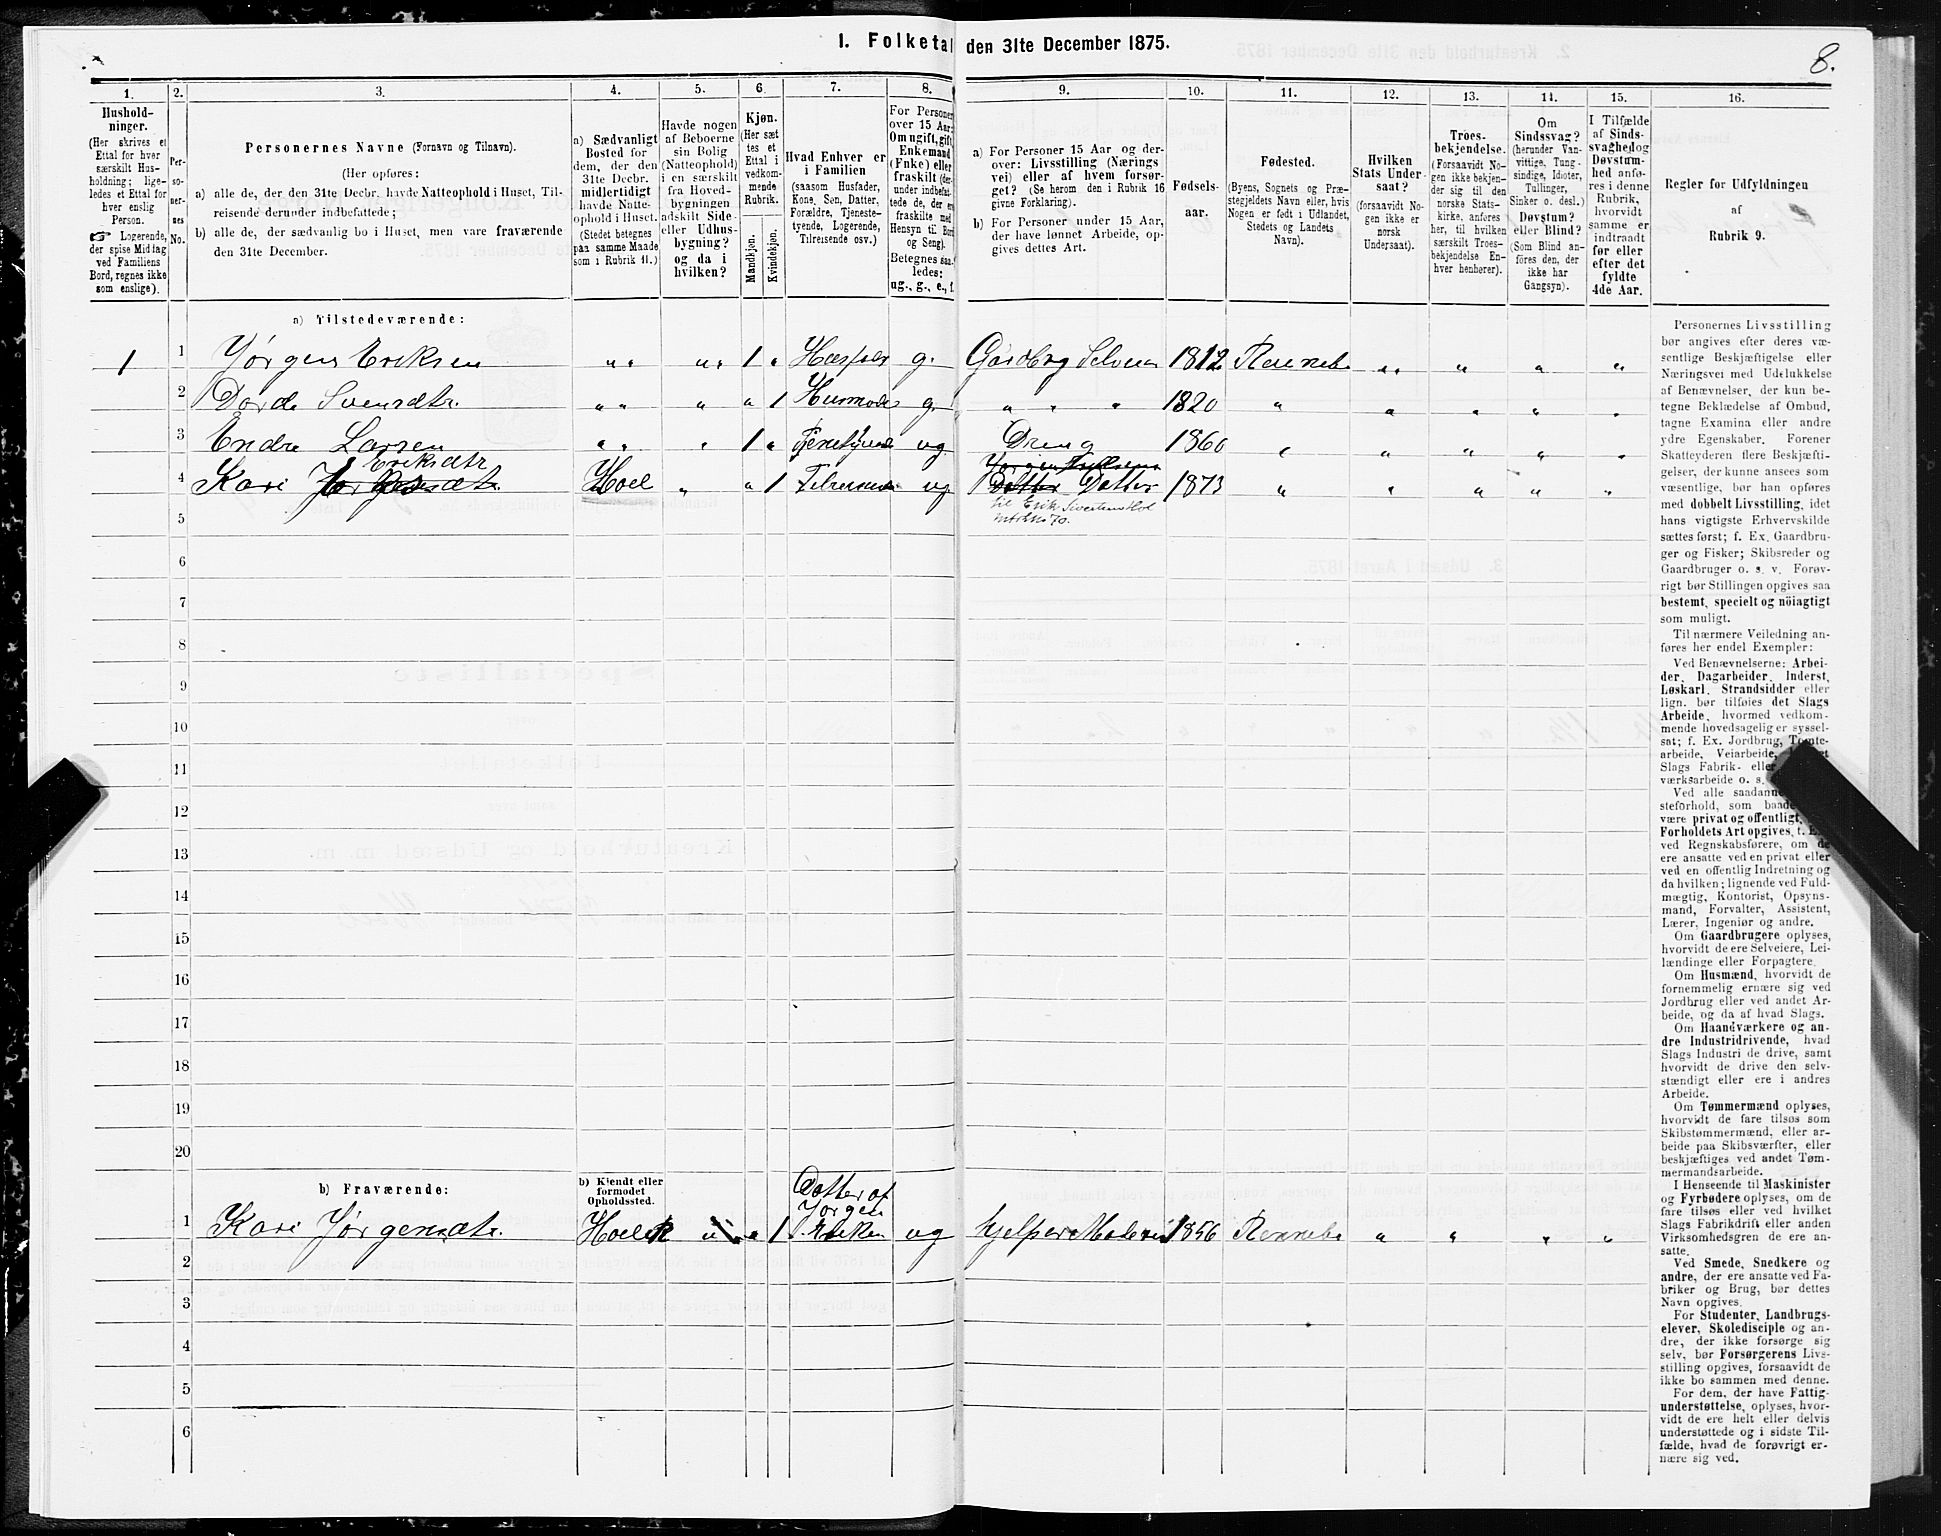 1. Folketal den 31te December 1875.
8.
1. 2. 3. 4. 5. 6. 7. 8. 9. 10. 11. 12. 13. 14. 15. 16.
Hushold-
ninger.
(Her skrives et
Ettal for hver
særskilt Hus-
holdning; lige-
ledes et Ettal for
hver enslig
Person.
☞ Logerende,
der spise Middag
ved Familiens
Bord, regnes ikke
som enslige).
Per-
so-
ner-
nes
No.
Personernes Navne (Fornavn og Tilnavn).
(Her opføres:
a) alle de, der den 31te Decbr. havde Natteophold i Huset, Til-
reisende derunder indbefattede;
b) alle de, der sædvanlig bo i Huset, men vare fraværende
den 31te December.
a) Sædvanligt
Bosted for
dem, der den
31te Decbr.
midlertidigt
havde Natte-
ophold i Huset.
(Stedet betegnes
paa samme Maade
som i Rubrik 11.)
Havde nogen
af Beboerne
sin Bolig
(Natteophold)
i en særskilt
fra Hoved-
bygningen
adskilt Side-
eller Udhus-
bygning?
og da i
hvilken?
Kjøn.
(Her sæt
tes et
Ettal i
vedkom-
mende
Rubrik.
Mandkjøn.
Kvindekjøn.
Hvad Enhver er
i Familien
(saasom Husfader,
Kone, Søn, Datter,
Forældre, Tjeneste-
tyende, Logerende,
Tilreisende osv.)
For Personer
over 15 Aar:
Om ugift, gift,
Enkemand
(Enke) eller
fraskilt (der-
under indbefat-
tede de, der ere
fraskilte med
Hensyn til Bord
og Seng).
Betegnes saa-
ledes:
ug., g., e., f.
a) For Personer 15 Aar og der-
over: Livsstilling (Nærings
vei) eller af hvem forsør-
get? (Se herom den i Rubrik 16
givne Forklaring).
b) For Personer under 15 Aar,
der have lønnet Arbeide, op-
gives dettes Art.
Fødsels-
aar.
Fødested.
(Byens, Sognets og Præ-
stegjeldets Navn eller, hvis
Nogen er født i Udlandet,
Stedets og Landets
Navn).
Hvilken
Stats Under-
saat?
(forsaavidt No-
gen ikke er
norsk
Undersaat).
Troes-
bekjendelse.
(Forsaavidt No-
gen ikke bekjen-
der sig til den
norske Stats-
kirke, anføres
her, til hvilken
særskilt Troes-
bekjendelse En-
hver henhører).
Om
Sindssvag?
(herunder Van-
vittige, Tung-
sindige, Idioter,
Tullinger,
Sinker o. desl.)
Døvstum?
eller Blind?
(Som Blind an-
føres den, der
ikke har
Gangsyn).
I Tilfælde
af Sinds-
svaghed og
Døvstum-
hed anfø-
res i denne
Rubrik,
hvorvidt
samme er
indtraadt
før eller
efter det
fyldte
4de Aar.
Regler for Udfyldningen
af
Rubrik 9.
a) Tilstedeværende:
1 1 Jørgen Eriksen „ „ „ 1 „ g. 1812 Rennebo „ „ „ „
2 Dorde Svensdtr. „ „ „ „ 1 Husmoder g. „ „ „ 1820 „ „ „ „ „
3 Endre Larsen „ „ „ 1 „ ug Dreng 1860 „ „ „ „ „
Eriksdtr
4 Kari Jørgensdtr. Hoel „ „ 1 ug Datter Datter 1873 „ „ „ „ „
til Erik Sivertsen Hol
5
6
7
8
9
10
11
12
13
14
15
16
17
18
19
20
b) Fraværende:
b) Kjendt eller
formodet
Opholdssted.
Datter af
Jørgen
1 Kari Jørgensdtr. „ „ 1 Eriksen ug 1856 Rennebo „ „ „ „
2
3
4
5
6
Personernes Livsstilling
bør angives efter deres væ-
sentlige Beskjæftigelse eller
Næringsvei med Udelukkelse
af Benævnelser, der kun be-
tegne Beklædelse af Ombud,
tagne Examina eller andre
ydre Egenskaber. Forener
Skatteyderen flere Beskjæfti-
gelser, der kunne ansees som
væsentlige, bør han opføres
med dobbelt Livsstilling, idet
hans vigtigste Erhvervskilde
sættes først; f. Ex. Gaardbru-
ger og Fisker; Skibsreder og
Gaardbruger o. s. v. Forøv-
rigt bør Stillingen opgives saa
bestemt, specielt og nöiagtigt
som muligt.
Til nærmere Veiledning an-
føres her endel Exempler:
Ved Benævnelserne: Arbei-
der, Dagarbeider, Inderst,
Løskarl, Strandsidder eller
lign. bør tilføies det Slags
Arbeide, hvormed vedkom-
mende hovedsagelig er syssel-
sat; f. Ex. Jordbrug, Tomte-
arbeide, Veiarbeide,
Slags Fabrik- eller
værksarbeide o. s.
Ved alle saadanne
steforhold, som baade
være privat og offentligt,
Forholdets Art opgives, t. Ex.
ved Regnskabsførere, om de
ere ansatte ved en privat eller
ved en offentlig Indretning og
da hvilken; lignende ved Fuld-
mægtig, Kontorist, Opsyns-
mand, Forvalter, Assistent,
Lærer, Ingeniør og andre.
Om Gaardbrugere oplyses,
hvorvidt de ere Selveiere, Lei-
lændinge eller Forpagtere.
Om Husmænd, hvorvidt de
fornemmelig ernære sig ved
Jordbrug eller ved andet Ar-
beide, og da af hvad Slags.
Om Haandværkere og an-
dre Industridrivende, hvad
Slags Industri de drive, samt
hvorvidt de drive den selv-
stændigt eller ere i andres
Arbeide.
Om Tømmermænd oplyses,
hvorvidt de fare tilsøs som
Skibstømmermænd, eller ar-
beide paa Skibsværfter, eller
beskjæftiges ved andet Tøm-
mermandsarbeide.
I Henseende til Maskinister
og Fyrbødere oplyses, om de
fare tilsøs eller ved hvilket
Slags Fabrikdrift eller anden
Virksomhedsgren de ere an-
satte.
Ved Smede, Snedkere og
andre, der ere ansatte ved Fa-
briker og Brug, bør dettes
Navn opgives.
For Studenter, Landbrugs-
elever, Skoledisciple og an-
dre, der ikke forsørge sig
selv, bør Forsørgerens Livs-
stilling opgives, forsaavidt de
ikke bo sammen med denne.
For dem, der have Fattig-
understøttelse, oplyses, hvor-
vidt de ere helt eller delvis
understøttede og i sidste Til-
fælde, hvad de forøvrigt er-
nære sig ved.